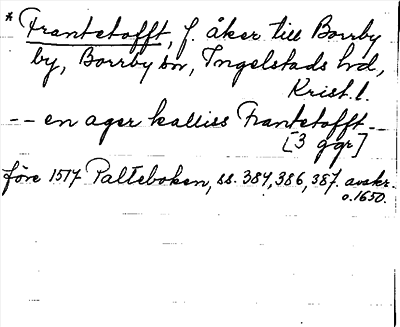 * Frantetofft, f. åker till Borrby
by, Borrby sn, Ingelstads hd,
Krist. l.
-- en ager kalliss Frantetofft --
[3 ggr]
före 1517 Palteboken, ss. 384, 386, 387. avskr.
o. 1650.